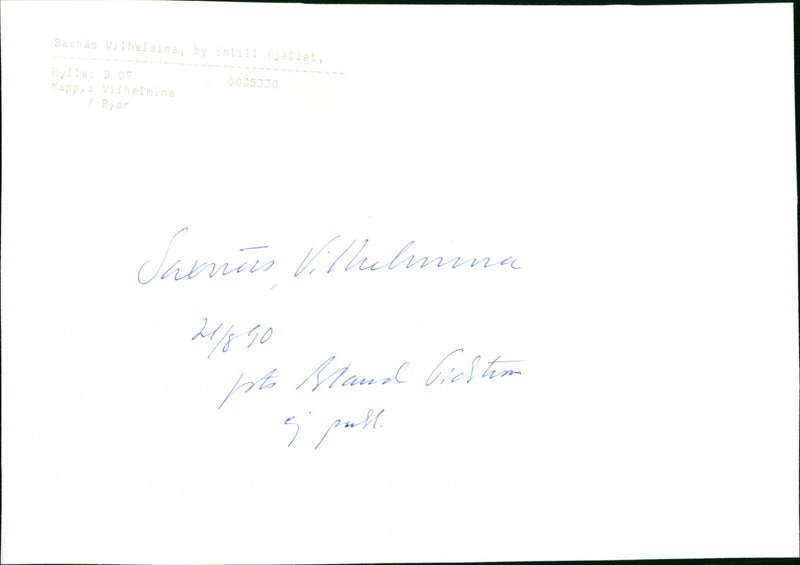 Saxnäs Vilhelmina, by intill fjället,
Hylla: B 09
0035330
Mapp.: Vilhelmina
/ Byar
Saxnäs, Vilhelmina
21/8 90
foto Gidstrom
ej publ.